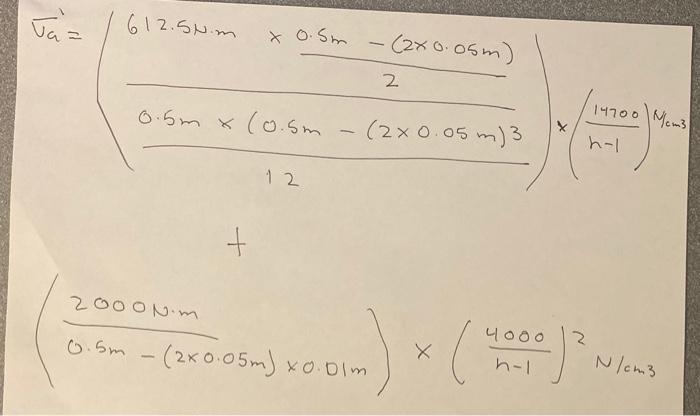 σa = ( 612.5N.m × 0.5m - (2×0.05m)
2
0.5m × (0.5m - (2×0.05m)3
12 ) × ( 14700
n-1 ) N/cm3
+
( 2000N.m
0.5m - (2×0.05m) ×0.01m ) × ( 4000
n-1 )2 N/cm3